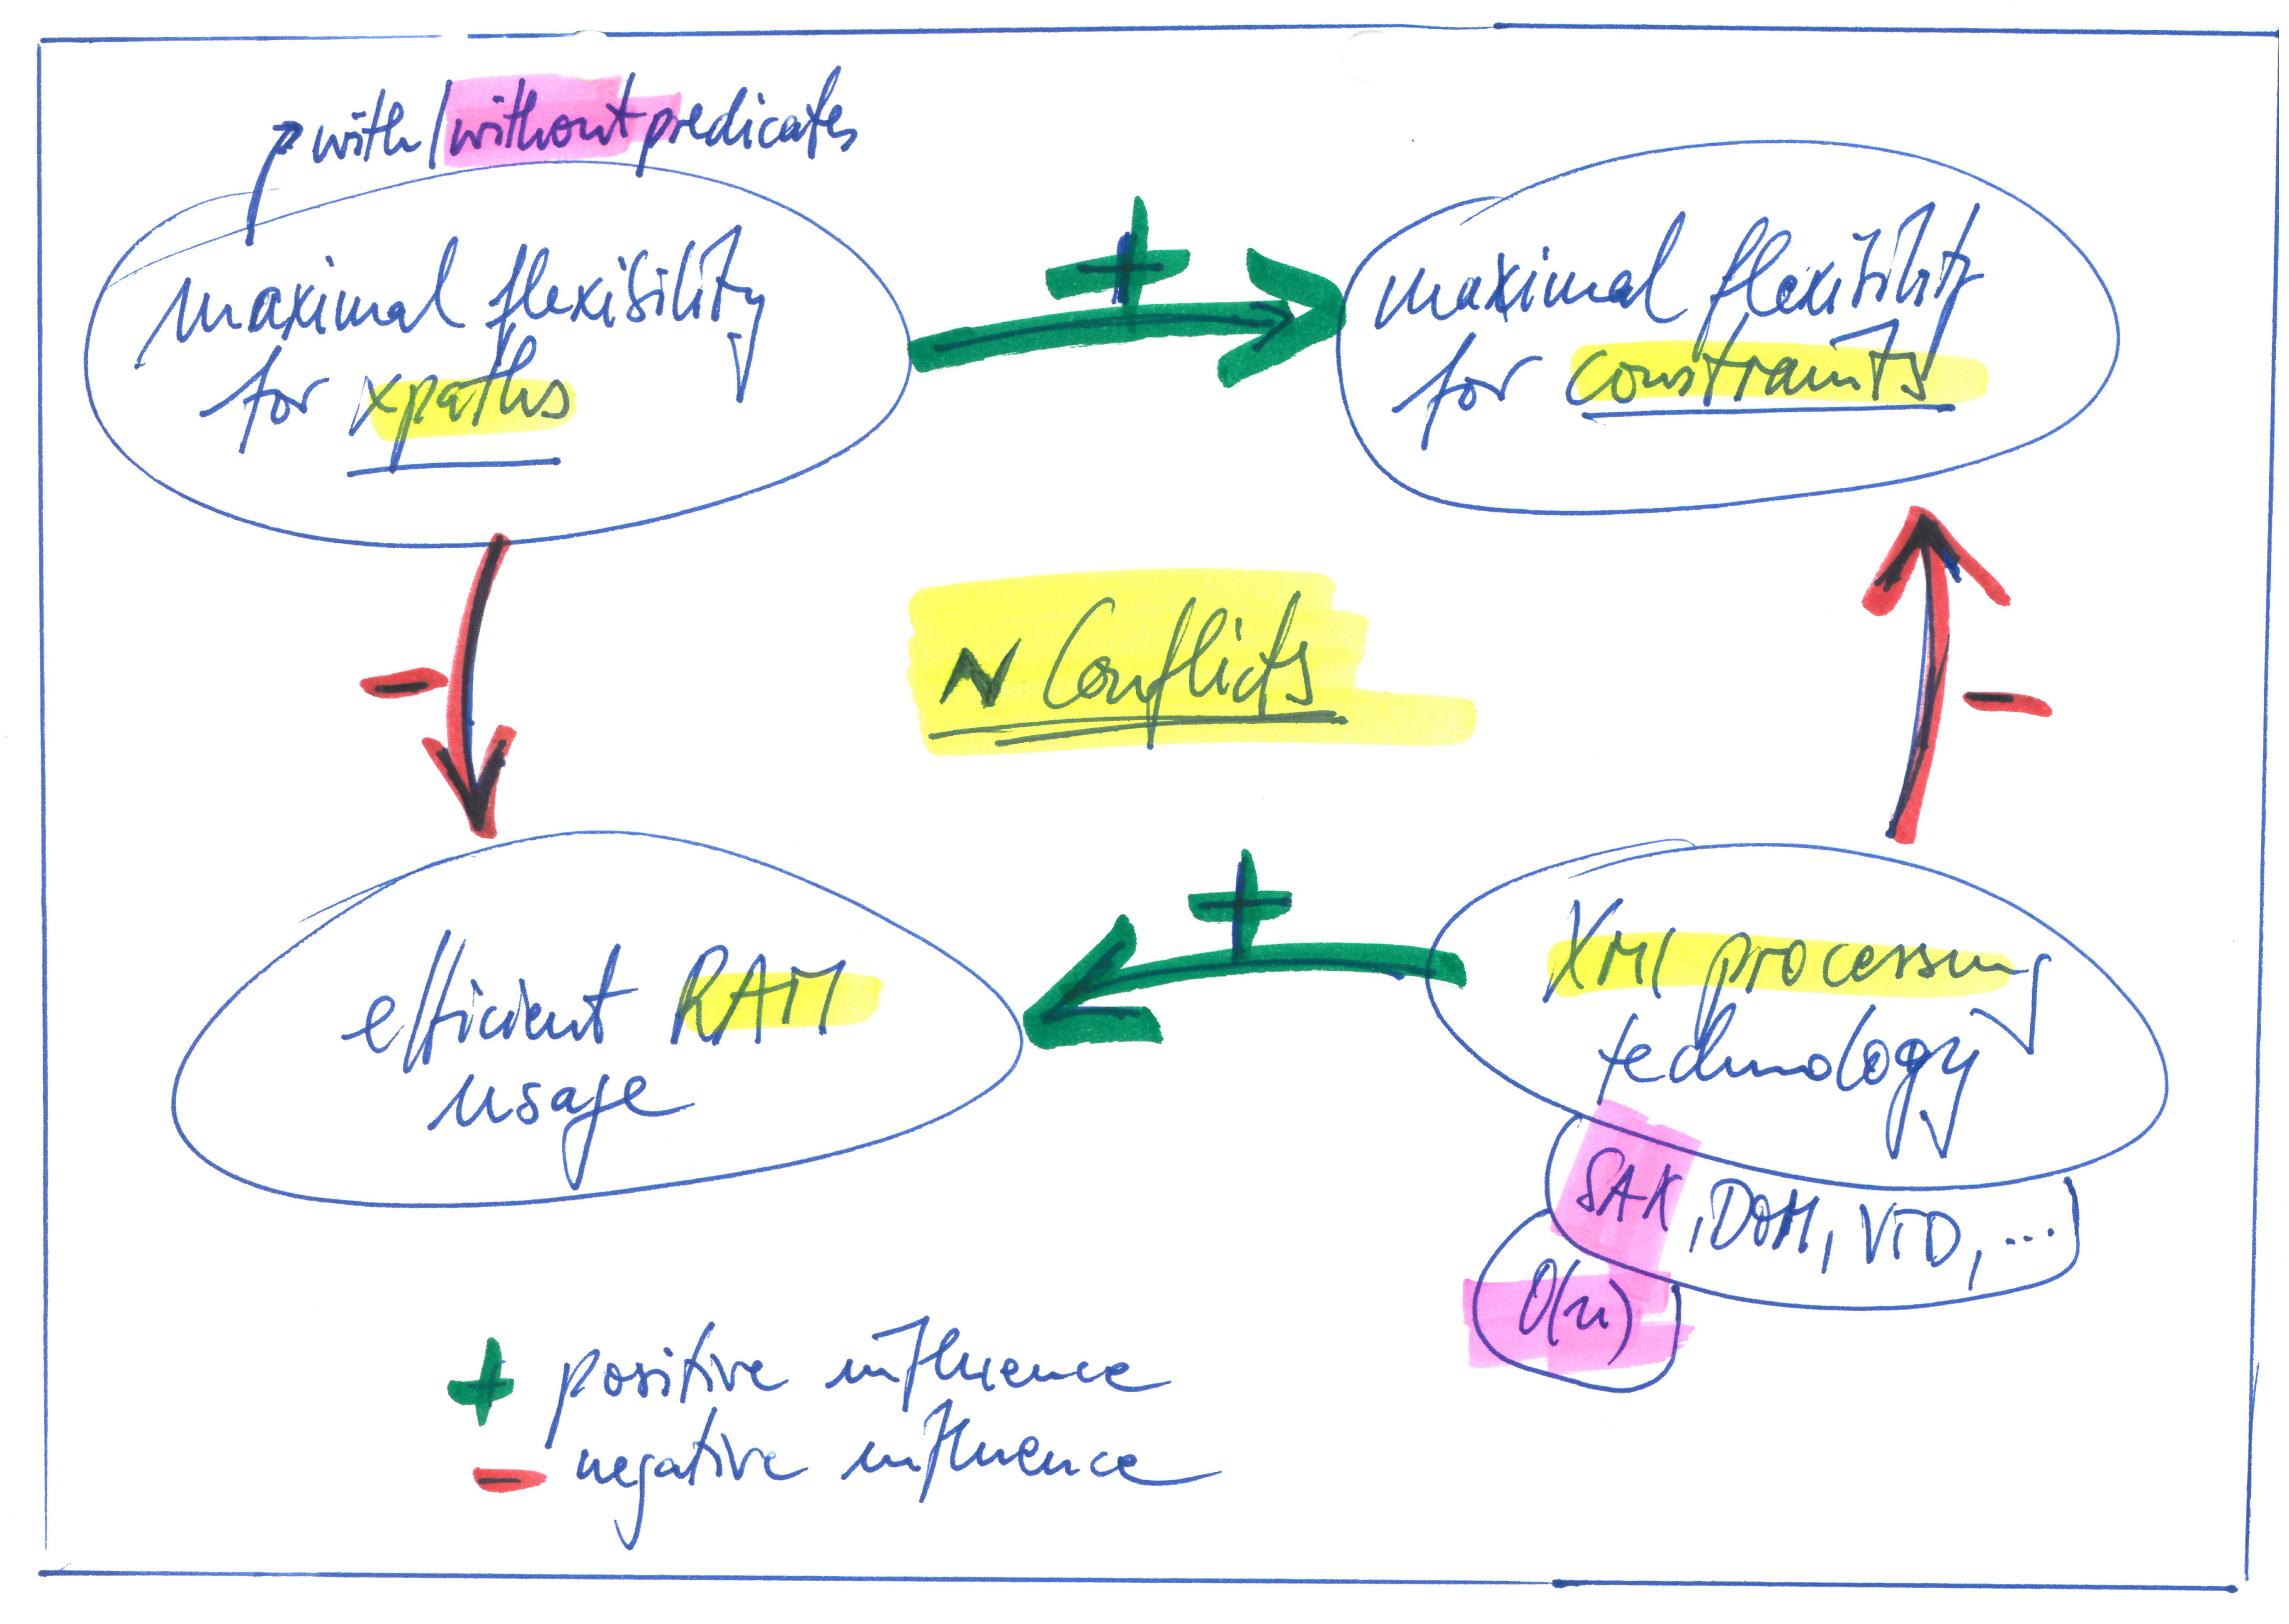 with/without predicates
maximal flexibility
for xpaths
+
maximal flexibility
for constraints
-
N Conflicts
-
+
efficient RAM
usage
XML processing
technology
SAX, DOM, VTD, ....
O(n)
+ positive influence
- negative influence